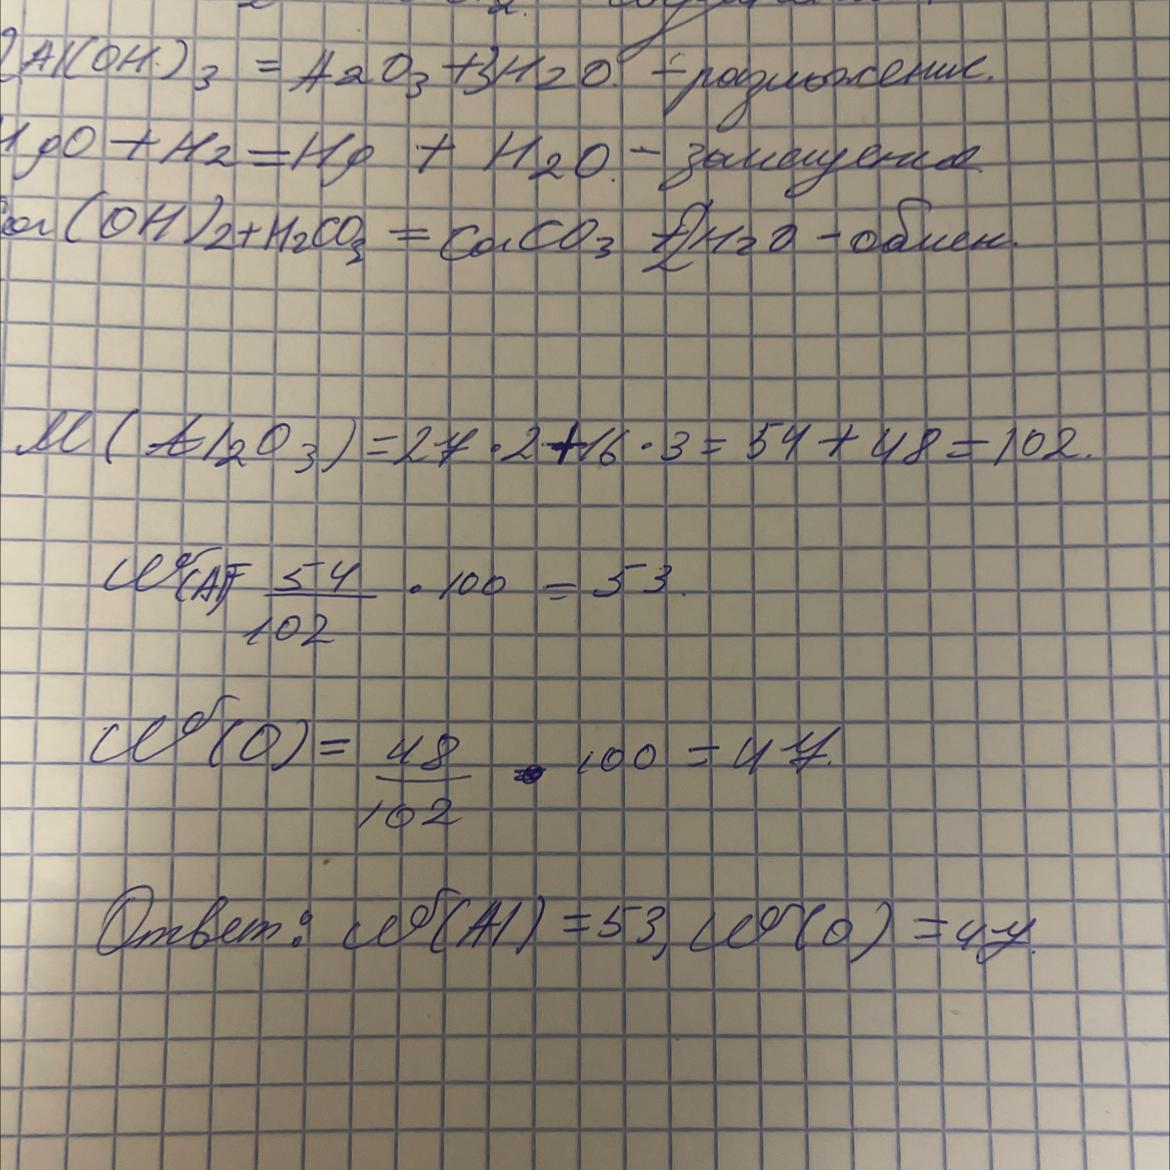 2Al(OH)3 = Al2O3 + 3H2O. - разложение.
HgO + H2 = Hg + H2O. - замещение
Ca(OH)2 + H2CO3 = CaCO3 + 2H2O - обмен.
M(Al2O3) = 27·2+16·3 = 54+48 = 102.
ω(Al) = 54/102 · 100 = 53.
ω(O) = 48/102 · 100 = 47.
Ответ: ω(Al) = 53, ω(O) = 47.